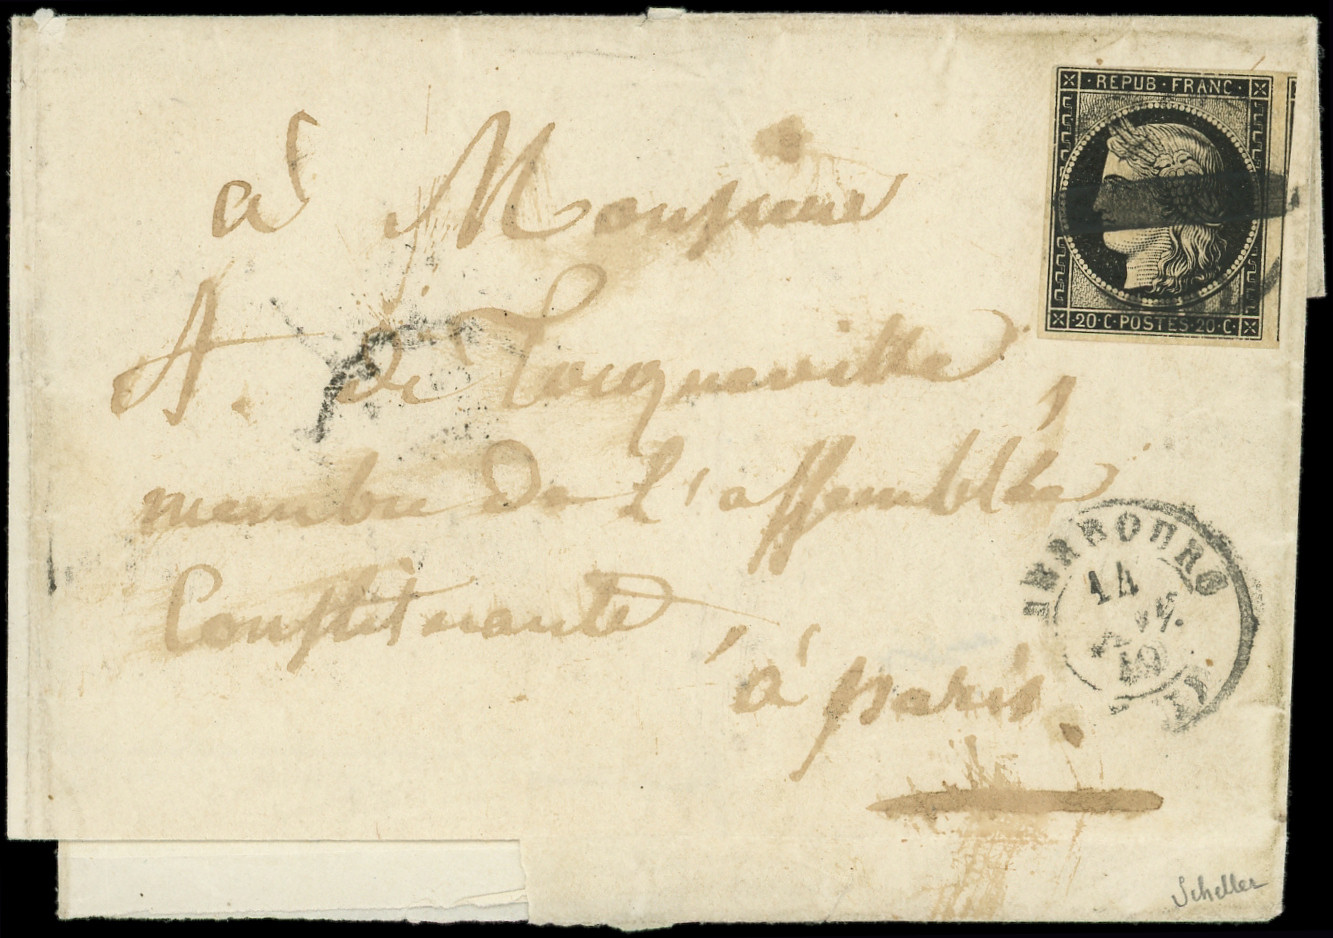 REPUB · FRANC ·
20 · C · POSTES · 20 · C ·
à Monsieur
A. de Tocqueville,
membre de l'assemblée
Constituante,
à paris.
CHERBOURG
14
49
Scheller